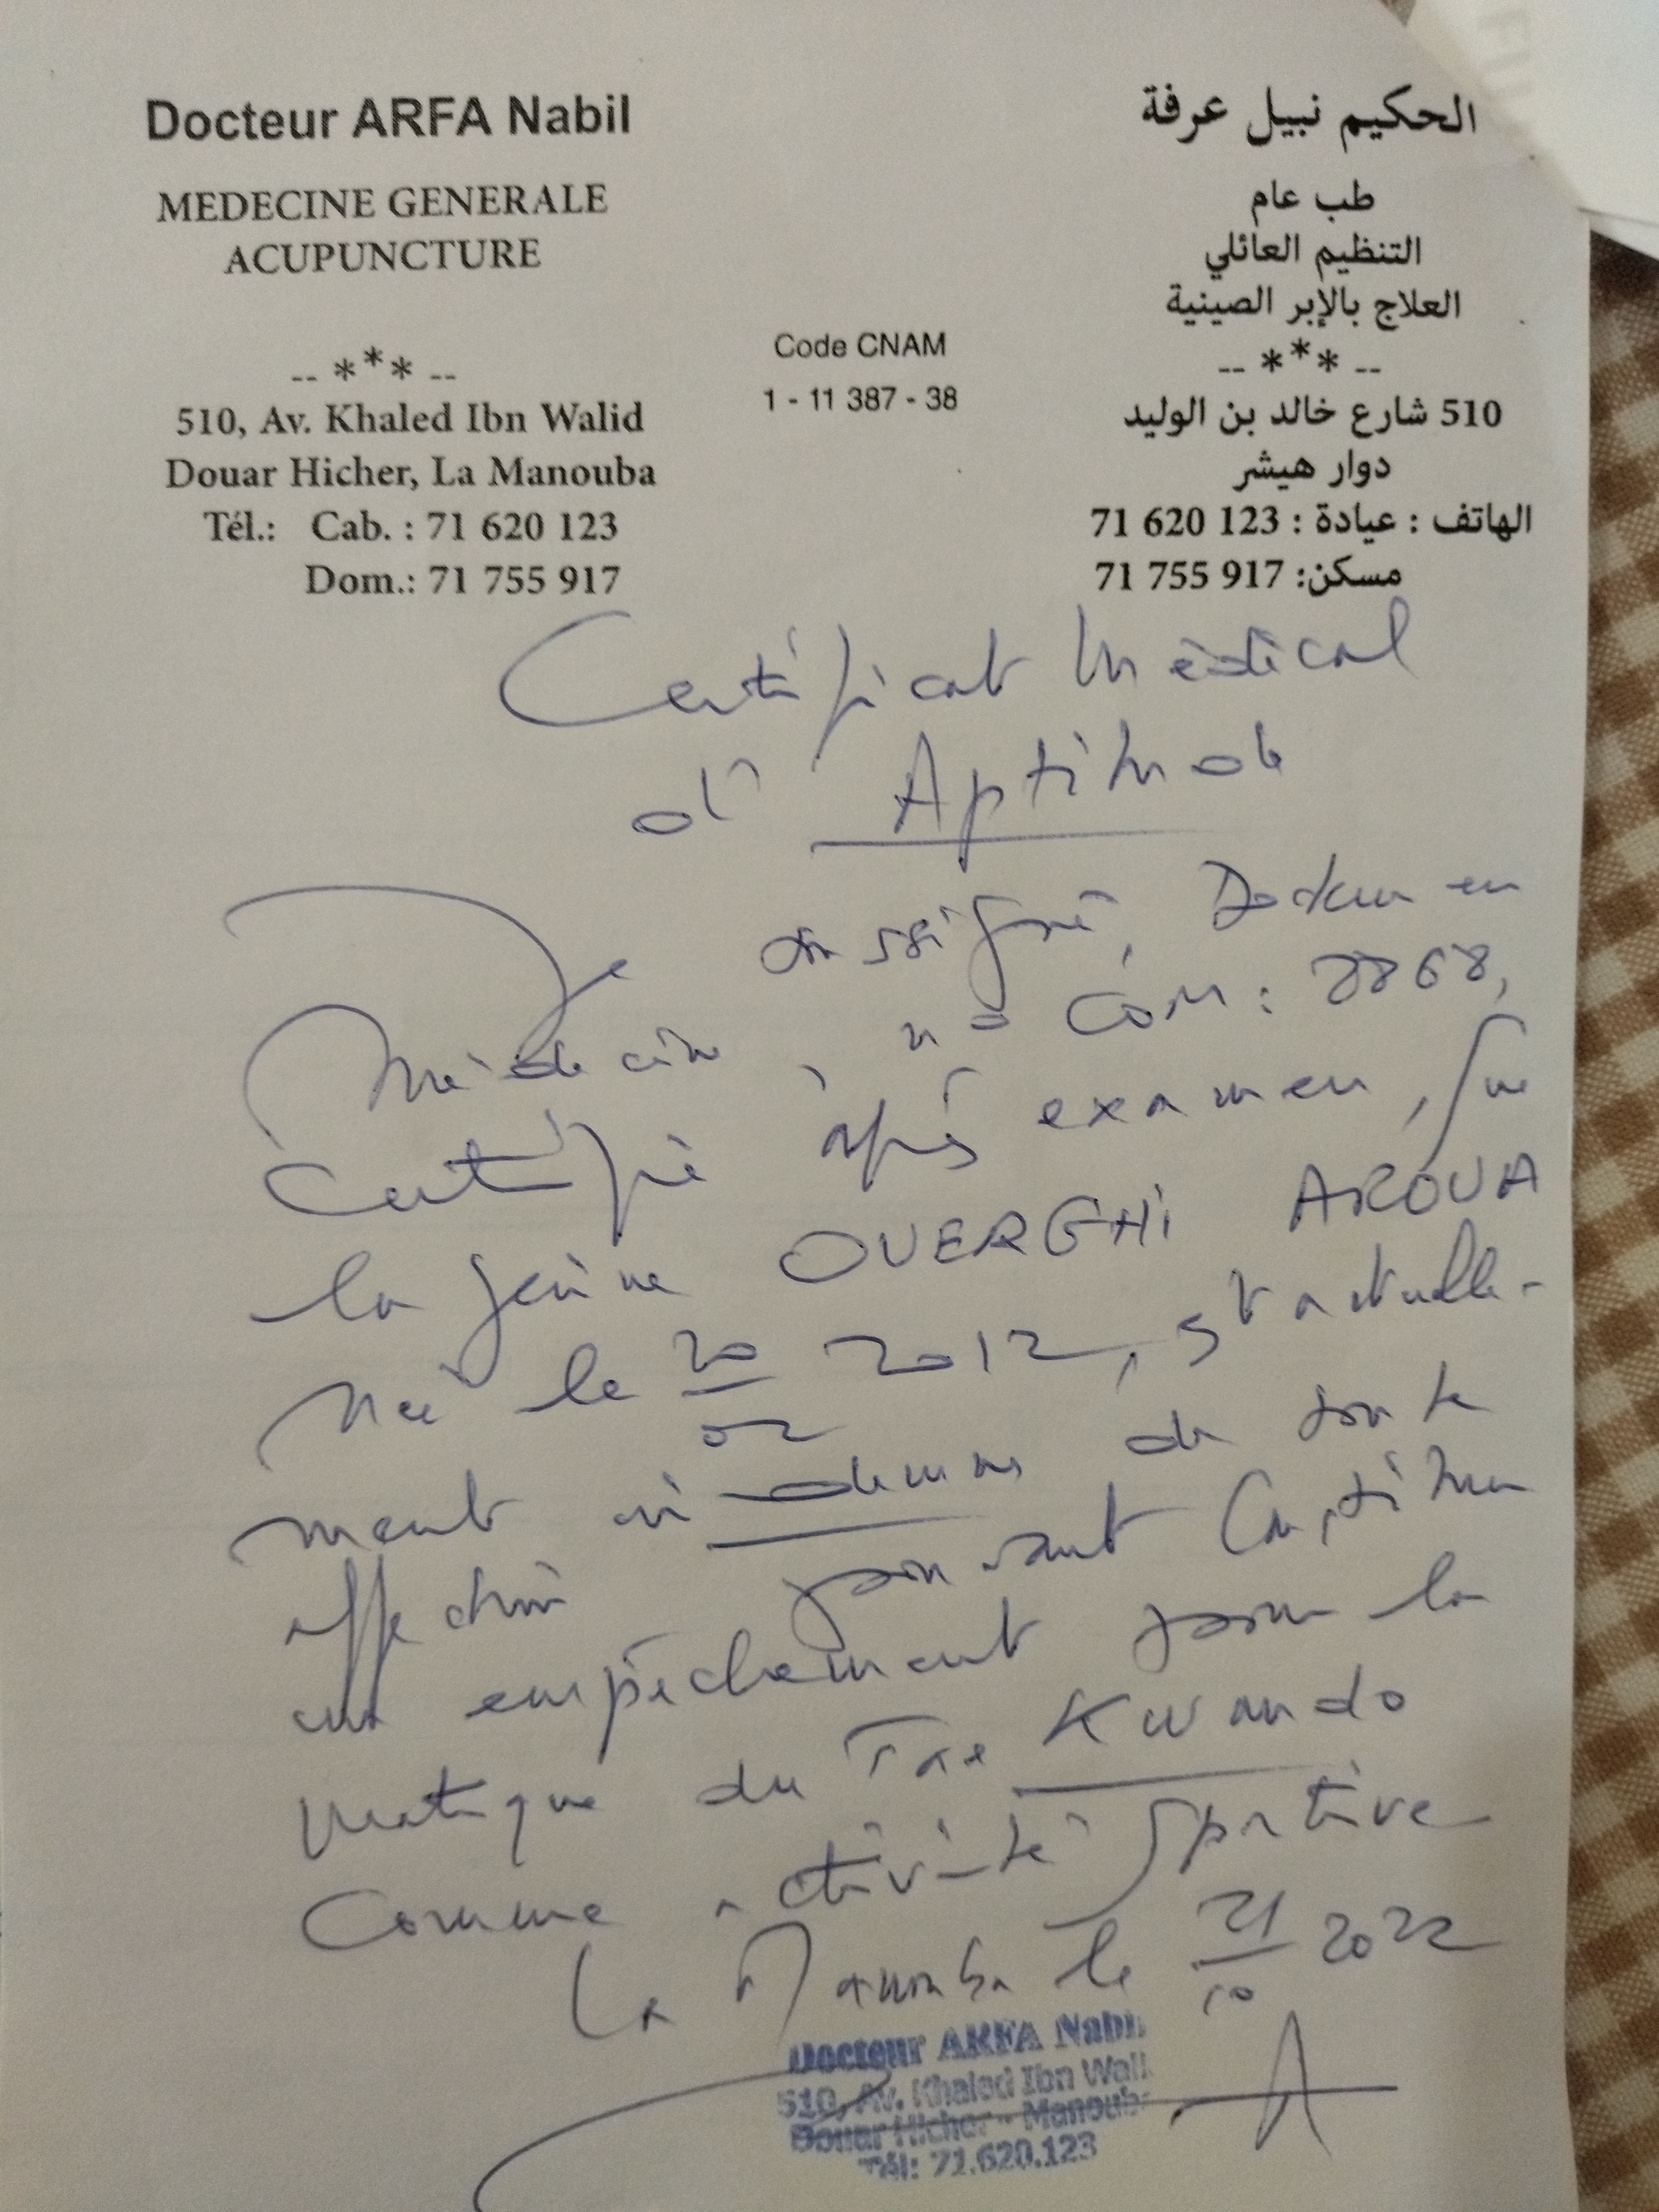 Docteur ARFA Nabil
MEDECINE GENERALE
ACUPUNCTURE
-- *** --
510, Av. Khaled Ibn Walid
Douar Hicher, La Manouba
Tél.: Cab. : 71 620 123
Dom.: 71 755 917
Code CNAM
1 - 11 387 - 38
الحكيم نبيل عرفة
طب عام
التنظيم العائلي
العلاج بالإبر الصينية
-- *** --
510 شارع خالد بن الوليد
دوار هيشر
الهاتف : عيادة : 123 620 71
مسكن: 917 755 71
Certificat Médical
d'Aptitude
Je soussigné, Docteur en
Médecine, n° COM: 8868,
Certifie après examen, que
la jeune OUERGHI AROUA
Née le 20/02 2012, est actuelle-
ment indemne de toute
affection pouvant Constituer
un empêchement pour la
pratique du Tae Kwando
Comme activité Sportive
La Manouba le 21/10 2022
Docteur ARFA Nabil
510, Av. Khaled Ibn Wali
Douar Hicher - Manouba
Tél: 71.620.123